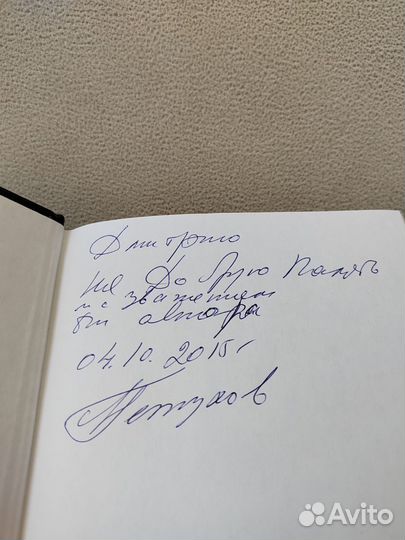 Дмитрию
на Добрую Память
и с уважением
от автора
04.10.2015г
Петухов
Avito